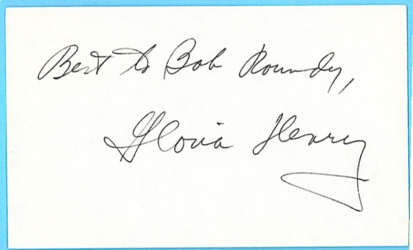 Best to Bob Roundy,
Gloria Henry